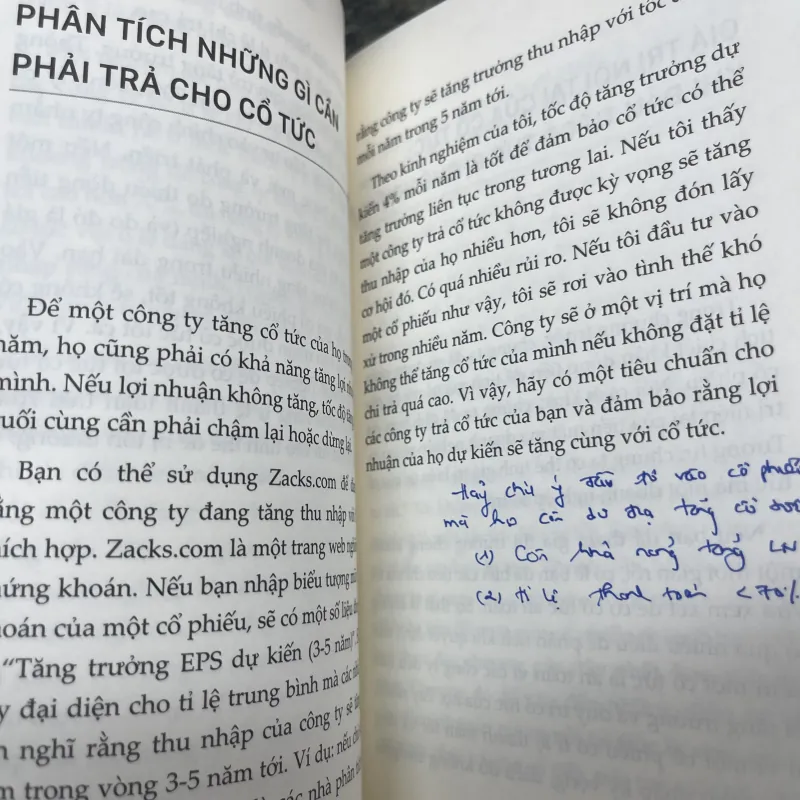 PHÂN TÍCH NHỮNG GÌ CẦN
PHẢI TRẢ CHO CỔ TỨC
Để một công ty tăng cổ tức của họ trong
năm, họ cũng phải có khả năng tăng lợi
mình. Nếu lợi nhuận không tăng, tốc độ
cùng cần phải chậm lại hoặc dừng lại
Bạn có thể sử dụng Zacks.com để
một công ty đang tăng thu nhập với
hích hợp. Zacks.com là một trang web
hứng khoán. Nếu bạn nhập biểu tượng
hoán của một cổ phiếu, sẽ có một số liệu
“Tăng trưởng EPS dự kiến (3-5 năm)”.
đại diện cho tỉ lệ trung bình mà các
nghĩ rằng thu nhập của công ty sẽ
trong vòng 3-5 năm tới. Ví dụ: nếu
các nhà phân
rằng công ty sẽ tăng trưởng thu nhập với tốc
mỗi năm trong 5 năm tới.
Theo kinh nghiệm của tôi, tốc độ tăng trưởng dự
kiến 4% mỗi năm là tốt để đảm bảo cổ tức có thể
tăng trưởng liên tục trong tương lai. Nếu tôi thấy
một công ty trả cổ tức không được kỳ vọng sẽ tăng
thu nhập của họ nhiều hơn, tôi sẽ không đón lấy
cơ hội đó. Có quá nhiều rủi ro. Nếu tôi đầu tư vào
một cổ phiếu như vậy, tôi sẽ rơi vào tình thế khó
xử trong nhiều năm. Công ty sẽ ở một vị trí mà họ
không thể tăng cổ tức của mình nếu không đặt tỉ lệ
chi trả quá cao. Vì vậy, hãy có một tiêu chuẩn cho
các công ty trả cổ tức của bạn và đảm bảo rằng lợi
nhuận của họ dự kiến sẽ tăng cùng với cổ tức.
Hãy chú ý đầu tư vào cổ phiếu
mà họ còn dư địa tăng cổ tức
(1) Còn khả năng tăng LN
(2) tỉ lệ thanh toán <70%